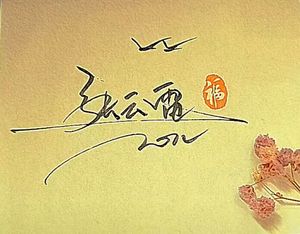 张云雷
福
2012